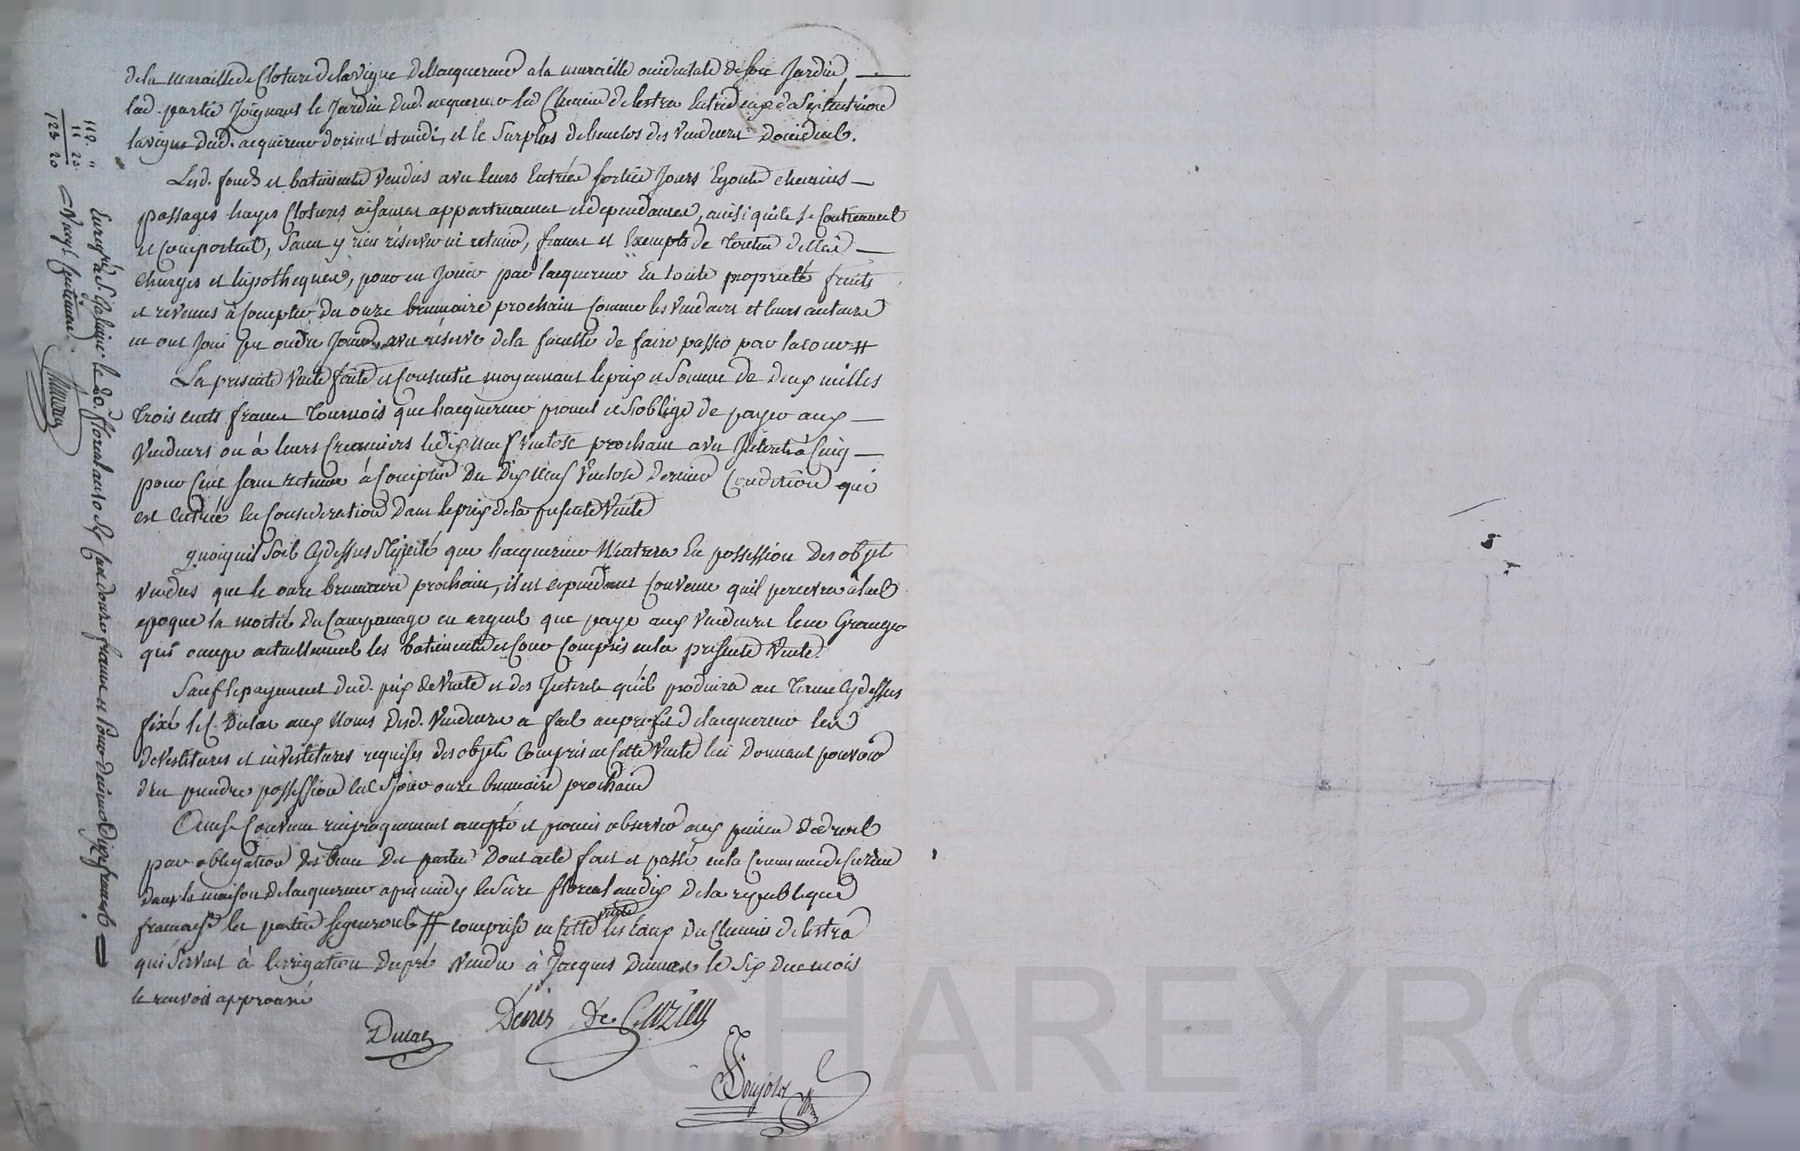 de la muraille de Cloture de la vigne de lacquereur a la muraille occidentale de son Jardin,
lad. partie Joignant le Jardin dud. acquereur led Chemin de lestra Entredeux a Septentrion
la vigne dud. acquereur d'orient et midi, et le Surplus de l'enclos des Vendeurs d'occident.
Lesd. fonds et batiments Vendus avec leurs Entrées sorties Jours Egouts chemins
passages hayes Clotures aisances appartenances et dependances, ainsi qu'ils se Contiennent
et Comportent, Sans y rien réserver ni retenir, francs et Exempts de toutes dettes
Charges et hipotheques, pour en Jouir par lacquereur En toute propriété fruits
et revenus à Compter du onze brumaire prochain Comme les Vendeurs et leurs auteurs
en ont Joui ou du Jouir, avec réserve de la faculté de faire passer par la cour #
La presente Vente faite et Consentie moyennant le prix et Somme de deux milles
trois cents francs tournois que lacquereur promet et S'oblige de payer aux
Vendeurs ou à leurs Creanciers le dix neuf Ventose prochain avec Interets à Cinq
pour Cent sans retenue à Compter du Dix neuf Ventose dernier Condition qui
est Entrée En Consideration dans le prix de la presente Vente
Quoiquil Soit Cydessus Stipulé que lacquereur N'entrera En possession des objets
vendus que le onze brumaire prochain, il est cependant Convenu qu'il percevra à lad
epoque la moitié du en argent que paye aux Vendeurs leur Granger
qui occupe actuellement les batiments et Cour Compris en la presente Vente.
Sauf le payement dud. prix de Vente et des Interets qu'il produira au terme Cydessus
fixé le C. Dulac aux Noms desd. Vendeurs a fait au profit de lacquereur les
devestitures et investitures requises des objets Compris en Cette Vente lui Donnant pouvoir
d'en prendre possession led Jour onze brumaire prochain
Ainsi Convenu reciproquement accepté et promis observer aux peines de droit
par obligation des biens des parties Dont acte fait et passé en la Commune de Cuzieu
dans la maison de lacquereur apres midy le Seize floreal an dix de la republique
francaise les parties # comprise en Cette vente les Eaux du Chemin de lestra
qui Servent à lirrigation du pré Vendu à Jacques le Six du mois
le renvoi approuvé
Dulac
Denis de Cuzieu
112. "
11 20
123 20
Enregé à St Galmier le 20 floreal an 10 Reçu Cent douze francs et pour decime onze francs
Vingt Centimes.